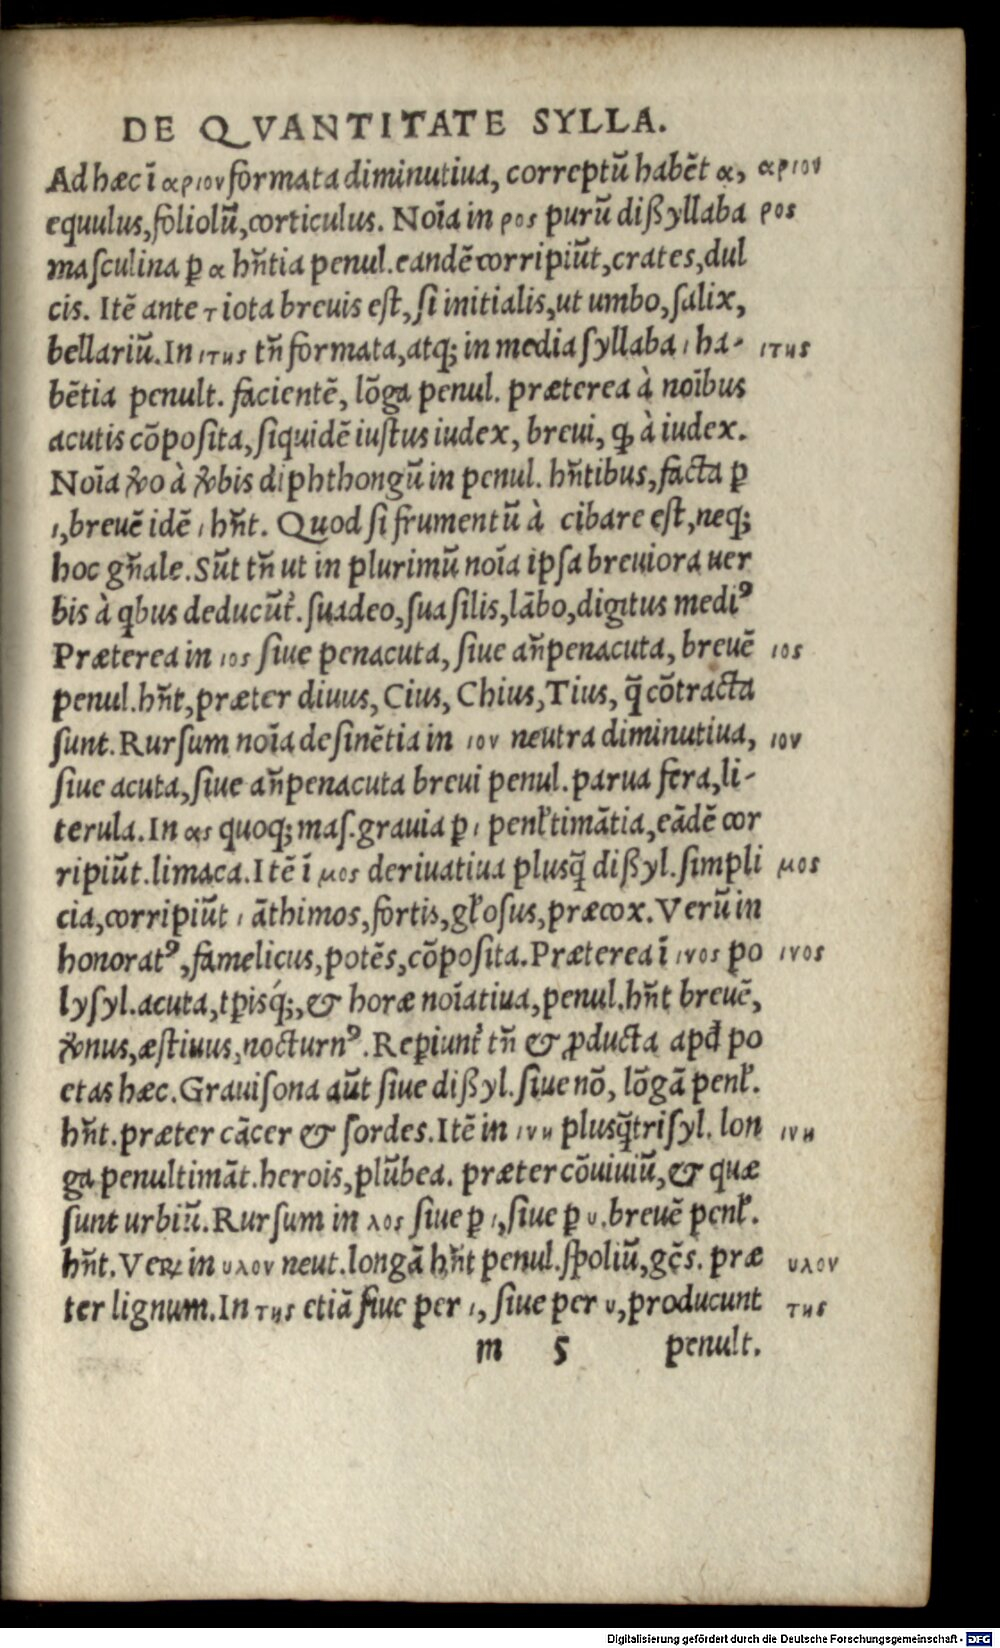 DE QVANTITATE SYLLA.
Ad hæc ī αριον formata diminutiua, correptū habēt α, αριον
equulus, foliolū, corticulus. Noīa in ρος purū dißyllaba ρος
masculina ꝑ α hñtia penul. eandē corripiūt, crates, dul
cis. Itē ante τ iota breuis est, si initialis, ut umbo, salix,
bellariū. In ιτης tñ formata, atq; in media syllaba ι ha- ιτης
bētia penult. facientē, lōga penul. præterea à noībus
acutis cōposita, siquidē iustus iudex, breui, ꝙ à iudex.
Noīa ꝟo à ꝟbis diphthongū in penul. hñtibus, facta ꝑ
ι, breuē idē ι hñt. Quod si frumentū à cibare est, neq;
hoc gñale. Sūt tñ ut in plurimū noīa ipsa breuiora uer
bis à qbus deducūt̉. suadeo, suasilis, lābo, digitus mediꝰ
Præterea in ιος siue penacuta, siue añpenacuta, breuē ιος
penul. hñt, præter diuus, Cius, Chius, Tius, q̄ cōtracta
sunt. Rursum noīa desinētia in ιον neutra diminutiua, ιον
siue acuta, siue añpenacuta breui penul. parua fera, li-
terula. In ας quoq; mas. grauia ꝑ ι penl̉timātia, eādē cor
ripiūt. limaca. Itē ī μος deriuatiua plusq̄ dißyl. simpli μος
cia, corripiūt ι āthimos, fortis, gl̉osus, præcox. Verū in
honoratꝰ, famelicus, potēs, cōposita. Præterea ī ινος po ινος
lysyl. acuta, tꝑisq́;, & horæ noīatiua, penul. hñt breuē,
ꝟnus, æstiuus, nocturnꝰ. Reꝑiunt̉ tñ & ꝓducta apđ po
etas hæc. Grauisona aūt siue dißyl. siue nō, lōgā penl̉.
hñt. præter cācer & sordes. Itē in ινη plusq̄trisyl. lon ινη
ga penultimāt. herois, plūbea. præter cōuiuiū, & quæ
sunt urbiū. Rursum in λος siue ꝑ ι, siue ꝑ υ. breuē penl̉.
hñt. Veꝝ in υλον neut. longā hñt penul. spoliū, gēs. præ υλον
ter lignum. In της etiā siue per ι, siue per υ, producunt της
m 5 penult.
Digitalisierung gefördert durch die Deutsche Forschungsgemeinschaft - DFG